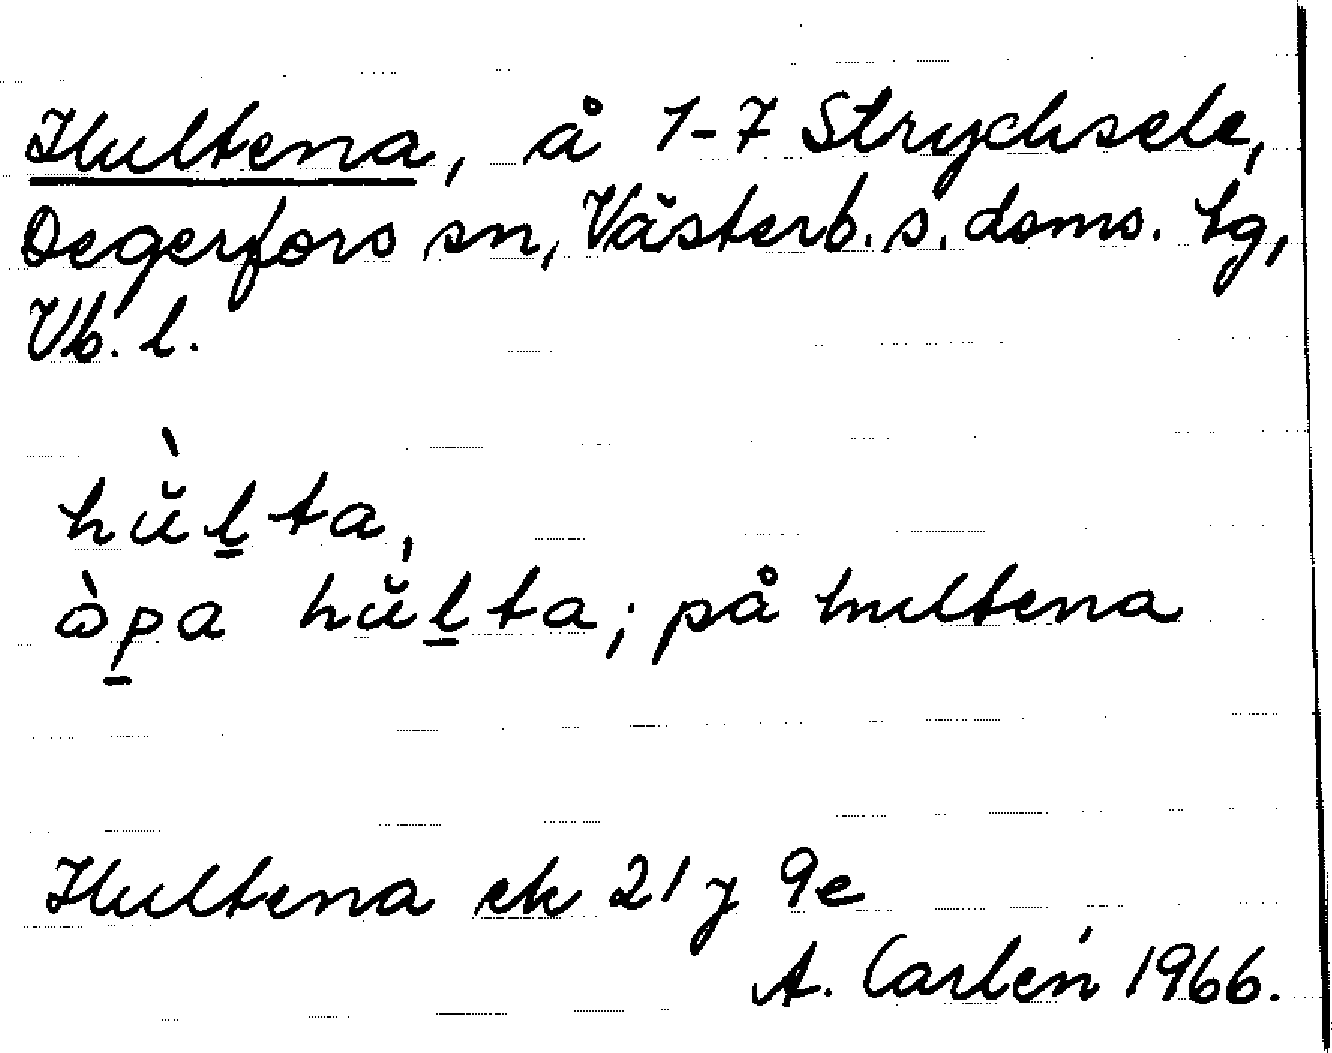 Hultena, å 1-7 Strycksele,
Degerfors sn, Västerb. s. doms. lg,
Vb. l.
hu᷇̆l̲ta,
àp̲a hŭl̲ta; på hultena
Hultena ek 21 J 9e
A. Carlén 1966.